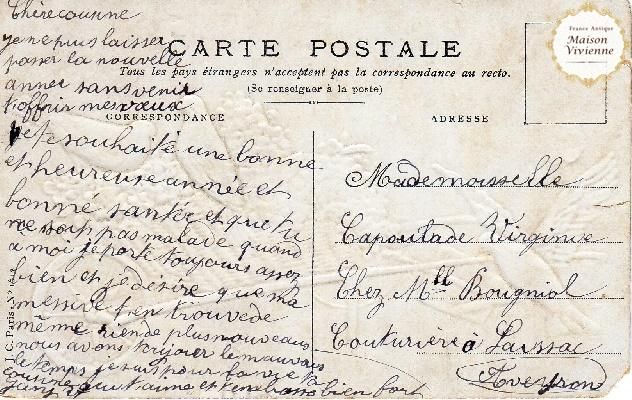 Chère cousine
je ne puis laisser
passer la nouvelle
anner sans venir
t'offrir mes vœux
je te souhaite une bonne
et heureuse année et
bonne santée et que tu
ne sois pas malade quand
a moi je porte toujours assez
bien et je désire que ma
messive t'en trouve de
même rien de plus nouveau
nous avons toujour le mauvais
le temps je suis pour la vie ta
cousine qui t'aime et bien fort
CARTE POSTALE
Tous les pays étrangers n'acceptent pas la correspondance au recto.
(Se renseigner à la poste)
CORRESPONDANCE
ADRESSE
Mademoiselle
Capoulade Virginie
Chez Mlle Bougniol
Couturière à Laissac
Aveyron
J. C. Paris
France Antique
Maison
Vivienne